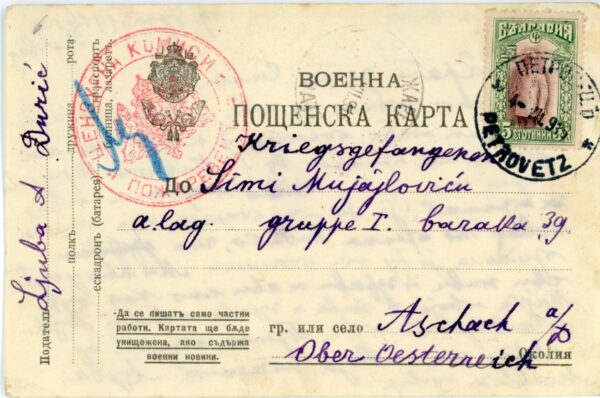 БЪЛГАРИЯ
5 СТОТИНКИ 5
PETROVETZ
ВОЕННА
ПОЩЕНСКА КАРТА
Kriegsgefangenen
До Simi Mijajloviću
a lag. gruppe I. baraka 39
гр. или село Aschach a/D
Ober Oesterreich
Околия
Да се пишатъ само частни
работи. Картата ще бѫде
унищожена, ако съдържа
военни новини.
Подателъ Ljuba A Đurić
полкъ дружина рота
ескадронъ (батарея) болница, лазаретъ
транспортъ